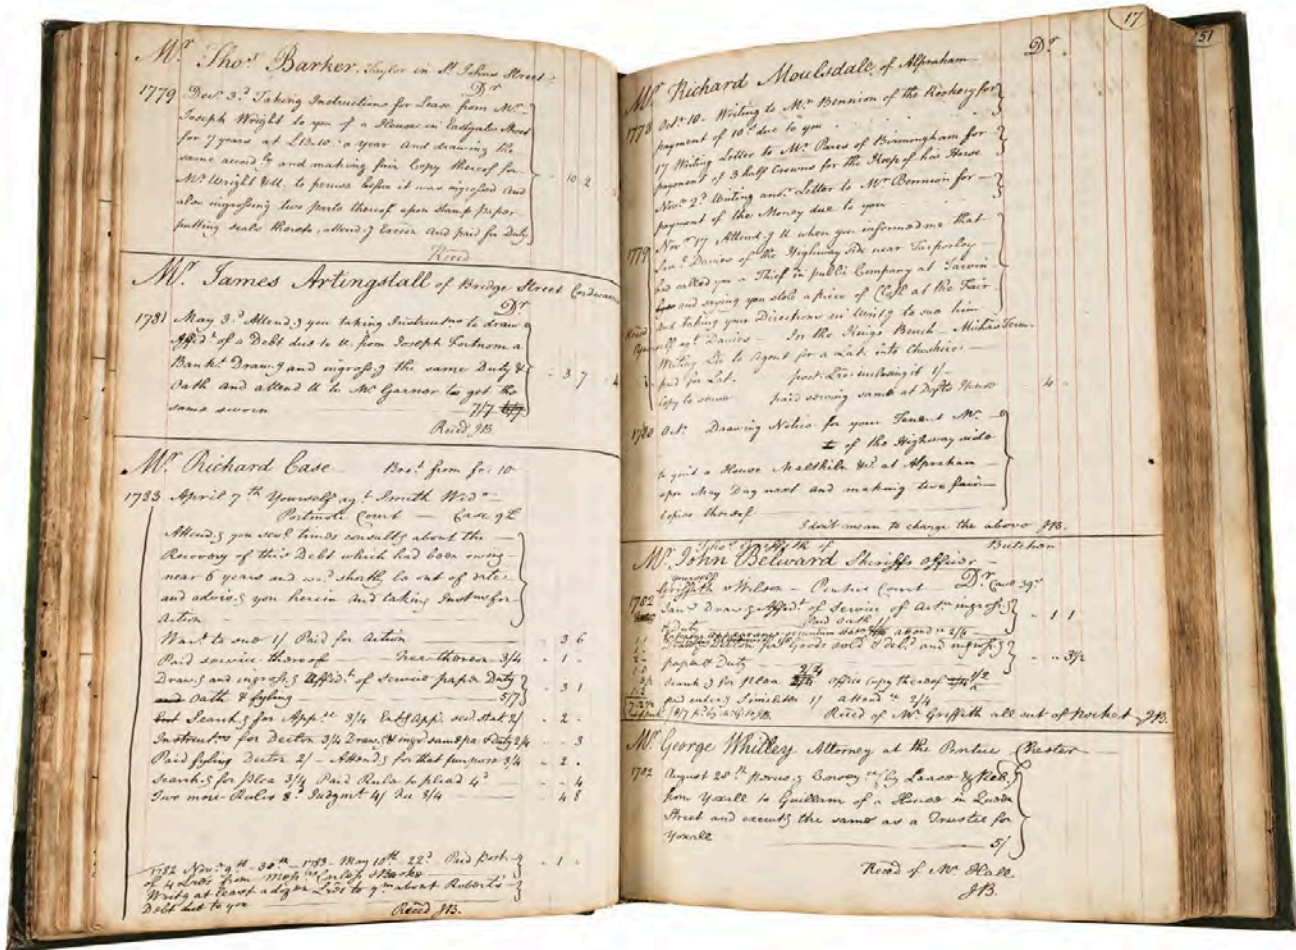 Mr Thos Barker, Taylor in St Johns Street
Dr
1779 Decr 3d Taking Instructions for Lease from Mr
Joseph Wright to you of a House in Eastgate Street
for 7 years at £13.10. a year and drawing the
same accordy and making fair Copy thereof for
Mr Wright & U. to peruse before it was ingrossed and
also ingrossing two parts thereof upon stamp paper
putting seals thereto, attendg Excise and paid for Duty
10 2
Recd
Mr James Artingstall of Bridge Street Cordwainer
Dr
1781 May 3d Attendg you taking Instructns to draw
Affidt of a Debt due to U. from Joseph Fortnom a
Bankt Drawg and ingrossg the same Duty &
Oath and attend U to Mr Garner to get the
same sworn 7/7
3 7
Recd JB.
Mr Richard Case Brot from fo: 10
1783 April 7th Yourself agt Smith Widr
Portmote Court — Case 9£
Attendg you sevl times consultg about the
Recovery of this Debt which had been owing
near 6 years and wod shortly be out of date
and advisg you herein and taking Instns for
Action
Wart to sue 1/ Paid for Action - 3 6
Paid service thereof 3/4 - 1 -
Drawg and ingrossg Affidt of Service paper Duty
and Oath & fyling 5/7 - 3 1
Searchg for Appce 3/4 2/ - 2 -
Instructns for Declon 3/4 Drawg & ingr same 2/4 - - 3
Paid fyling Declon 2/ - Attendg for that purpose 3/4 - 2 -
Searchg for plea 3/4 Paid Rule to plead 4d - - 4
Two more Rules 8d Judgmt 4/ 3/4 4 8
1782 Novr 9th - 30th - 1783 - May 10th - 22d Paid Post
of 4 Lres from - 1 -
Writg at least a dozen Lres to ym about Roberts's
Debt due to you Recd JB.
17
51
Mr Richard Moulsdale, of Alpraham Dr
1778 Octr 10 - Writing to Mr Bennion of the Rookery for
payment of 10s due to you
17 Writing Letter to Mr Pares of Birmingham for
payment of 3 half Crowns for the Keep of his Horse
Novr 2d Writing anr Letter to Mr Bennion for
payment of the Money due to you
1779 Novr 17 Attendg U when you informed me that
Davies of the Highway side near Tarporley
had called you a Thief in public Company at Tarvin
and saying you stole a piece of Cloth at the Fair
and taking your Directions in writg to sue him
agt Davies - In the Kings Bench - Michas Term
Writing Lre to Agent for a Lat. into Cheshire
paid for Lat. 1/-
Copy to serve paid serving same at Defts House - 4 -
1780 Octr Drawing Notice for your Tenant Mr
of the Highway side
to quit a House Maltkiln &c at Alpraham
upon May Day next and making two fair
Copies thereof
I don't mean to charge the above JB.
Thos Griffith of Butcher
Mr John Belward Sheriffs officer
Dr
Griffith v Wilson - Pentice Court
1782 Drawg Affidt of Service of Actn ingrossg
& duty Paid oath 1/ - 1 1
Declon for Goods sold & deld and ingrossg
paper & Duty - - 3½
Searchg for plea office Copy thereof
paid enterg Similiter 1/ attendce 2/4
Recd of Mr Griffith all out of pocket JB.
Mr George Whitley Attorney at the Pentice Chester
1782 August 28th Perusg Conveyce by Lease & Rele
from Yoxall to Guillam of a House in Queen
Street and executg the same as a Trustee for
Yoxall 5/
Recd of Mr Hall
JB.